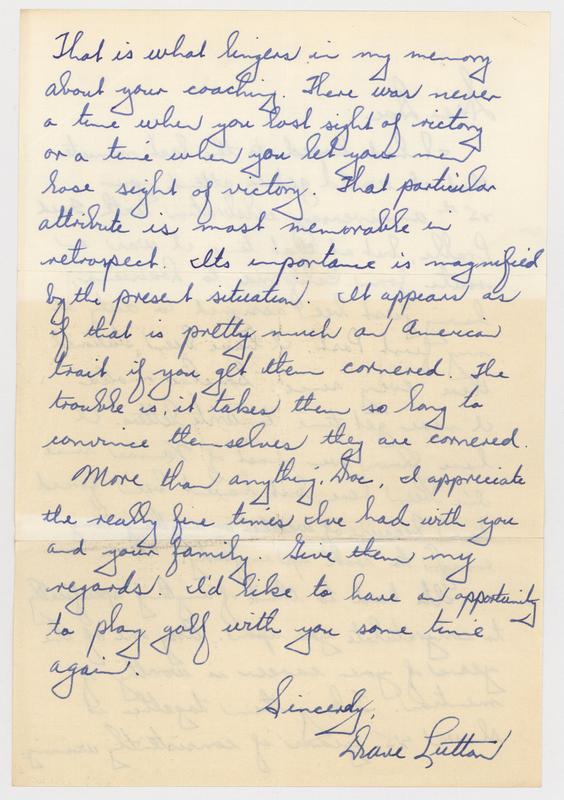 That is what lingers in my memory
about your coaching. There was never
a time when you lost sight of victory
or a time when you let your men
lose sight of victory. That particular
attribute is most memorable in
retrospect. Its importance is magnified
by the present situation. It appears as
if that is pretty much an American
trait if you get them cornered. The
trouble is, it takes them so long to
convince themselves they are cornered.
More than anything, Doc, I appreciate
the really fine times I've had with you
and your family. Give them my
regards. I'd like to have an opportunity
to play golf with you some time
again.
Sincerely,
Dave Lutton